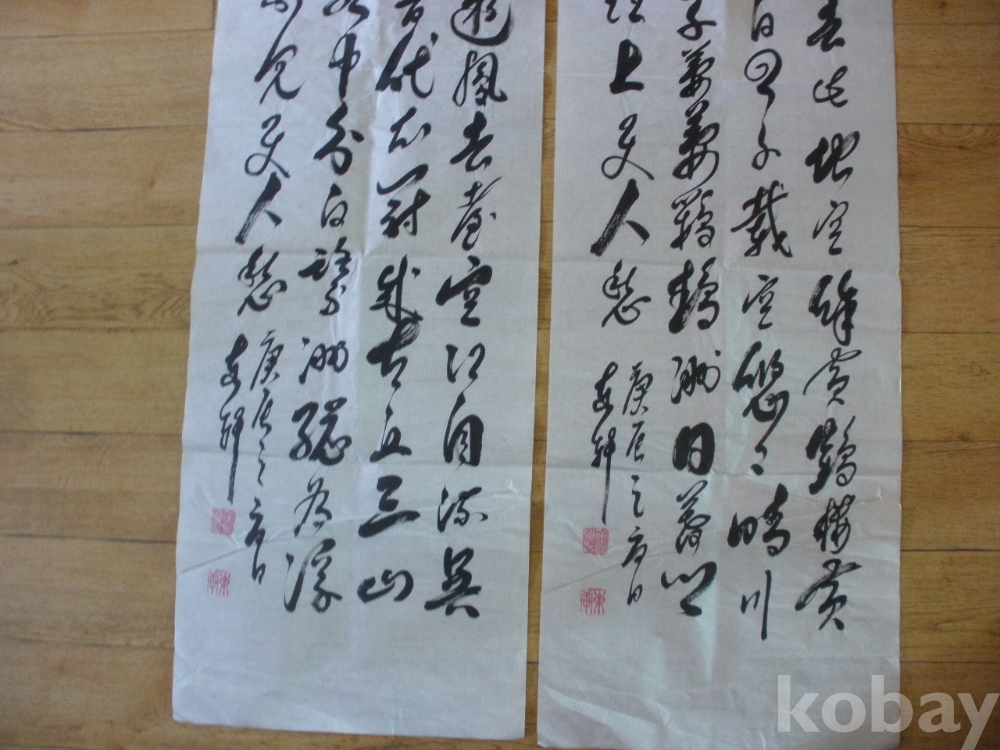 去此地空餘黃鶴樓黃
白雲千載空悠〻晴川
萋萋鸚鵡洲日暮鄉
江上使人愁
庚辰之
日
遊鳳去臺空江自流吳
晉代衣冠成古丘三山
水中分白鷺洲總為浮
不見使人愁
庚辰之
日
kobay